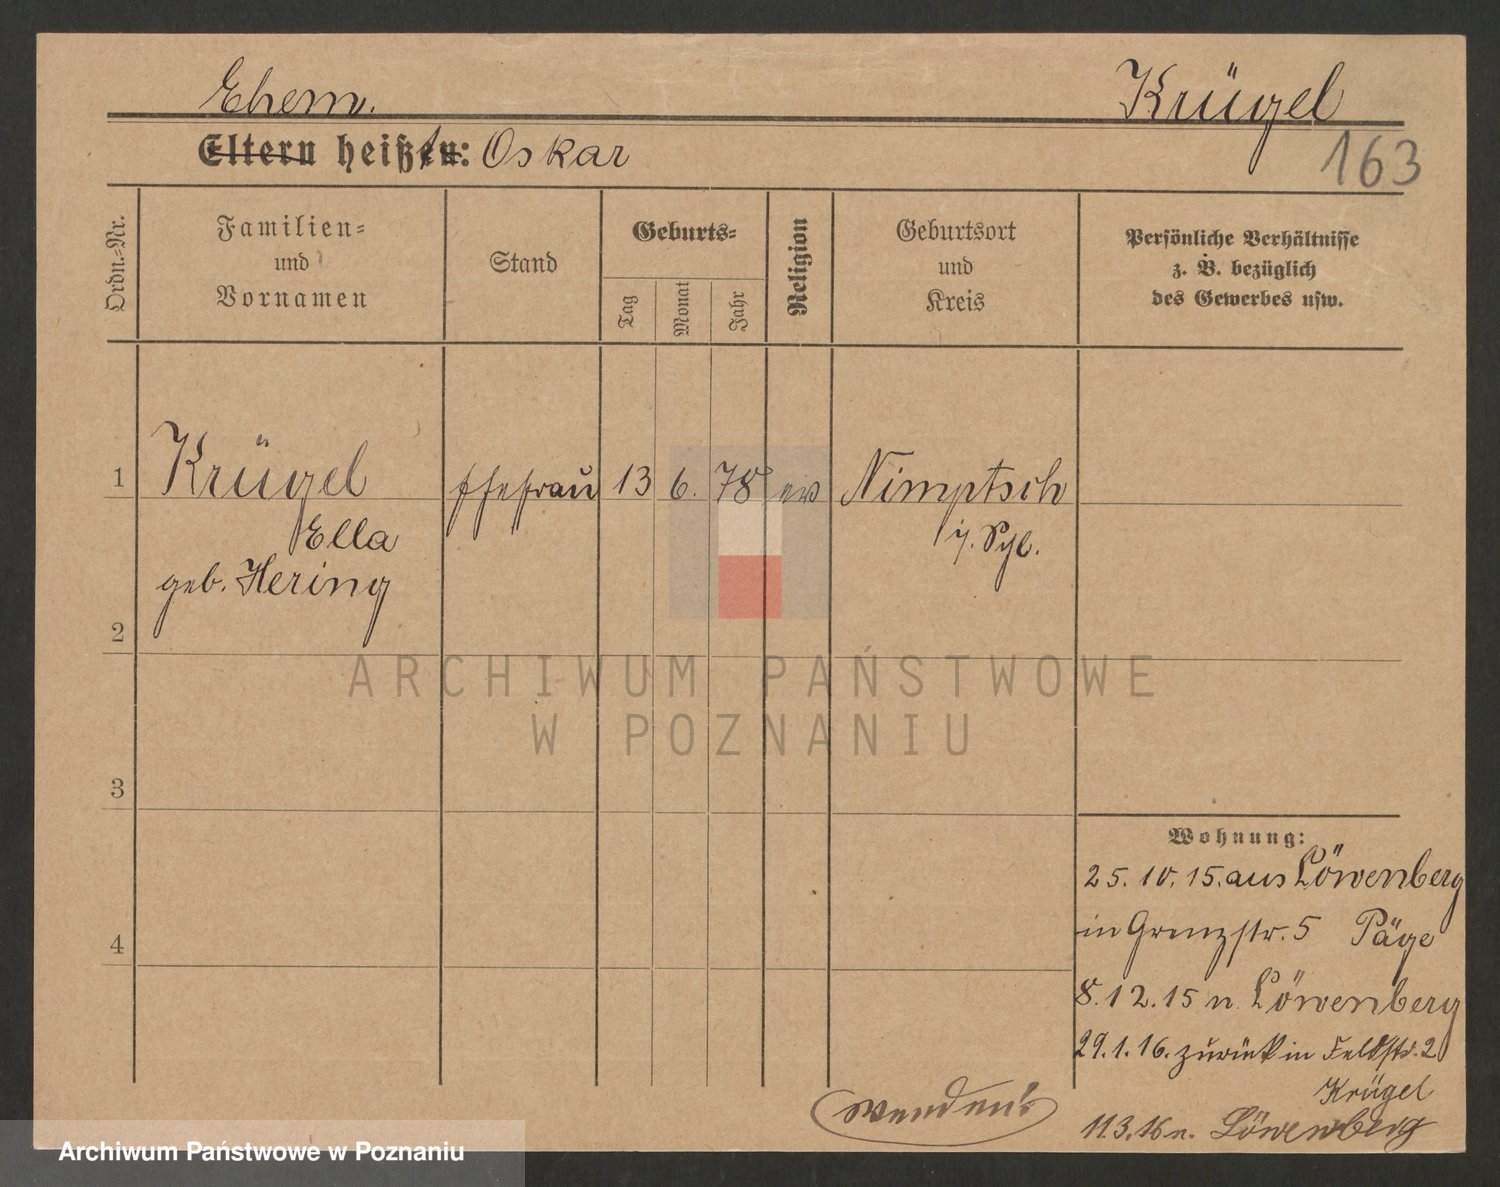 Ehem. Krügel
Eltern heißt: Oskar 163
Ordn.=Nr.
Familien=
und
Vornamen
Stand
Geburts=
Tag
Monat
Jahr
Religion
Geburtsort
und
Kreis
Persönliche Verhältnisse
z. B. bezüglich
des Gewerbes usw.
1 Krügel Ehefrau 13 6. 78 ev Nimptsch
Ella
geb. Hering
2
3
4
Wohnung:
25. 10. 15. aus Löwenberg
in Grenzstr. 5 Päge
8. 12. 15 n. Löwenberg
29. 1. 16. zurück in Feldstr. 2
Krügel
11.3.16 n. Löwenberg
wenden!
ARCHIWUM PAŃSTWOWE
W POZNANIU
Archiwum Państwowe w Poznaniu